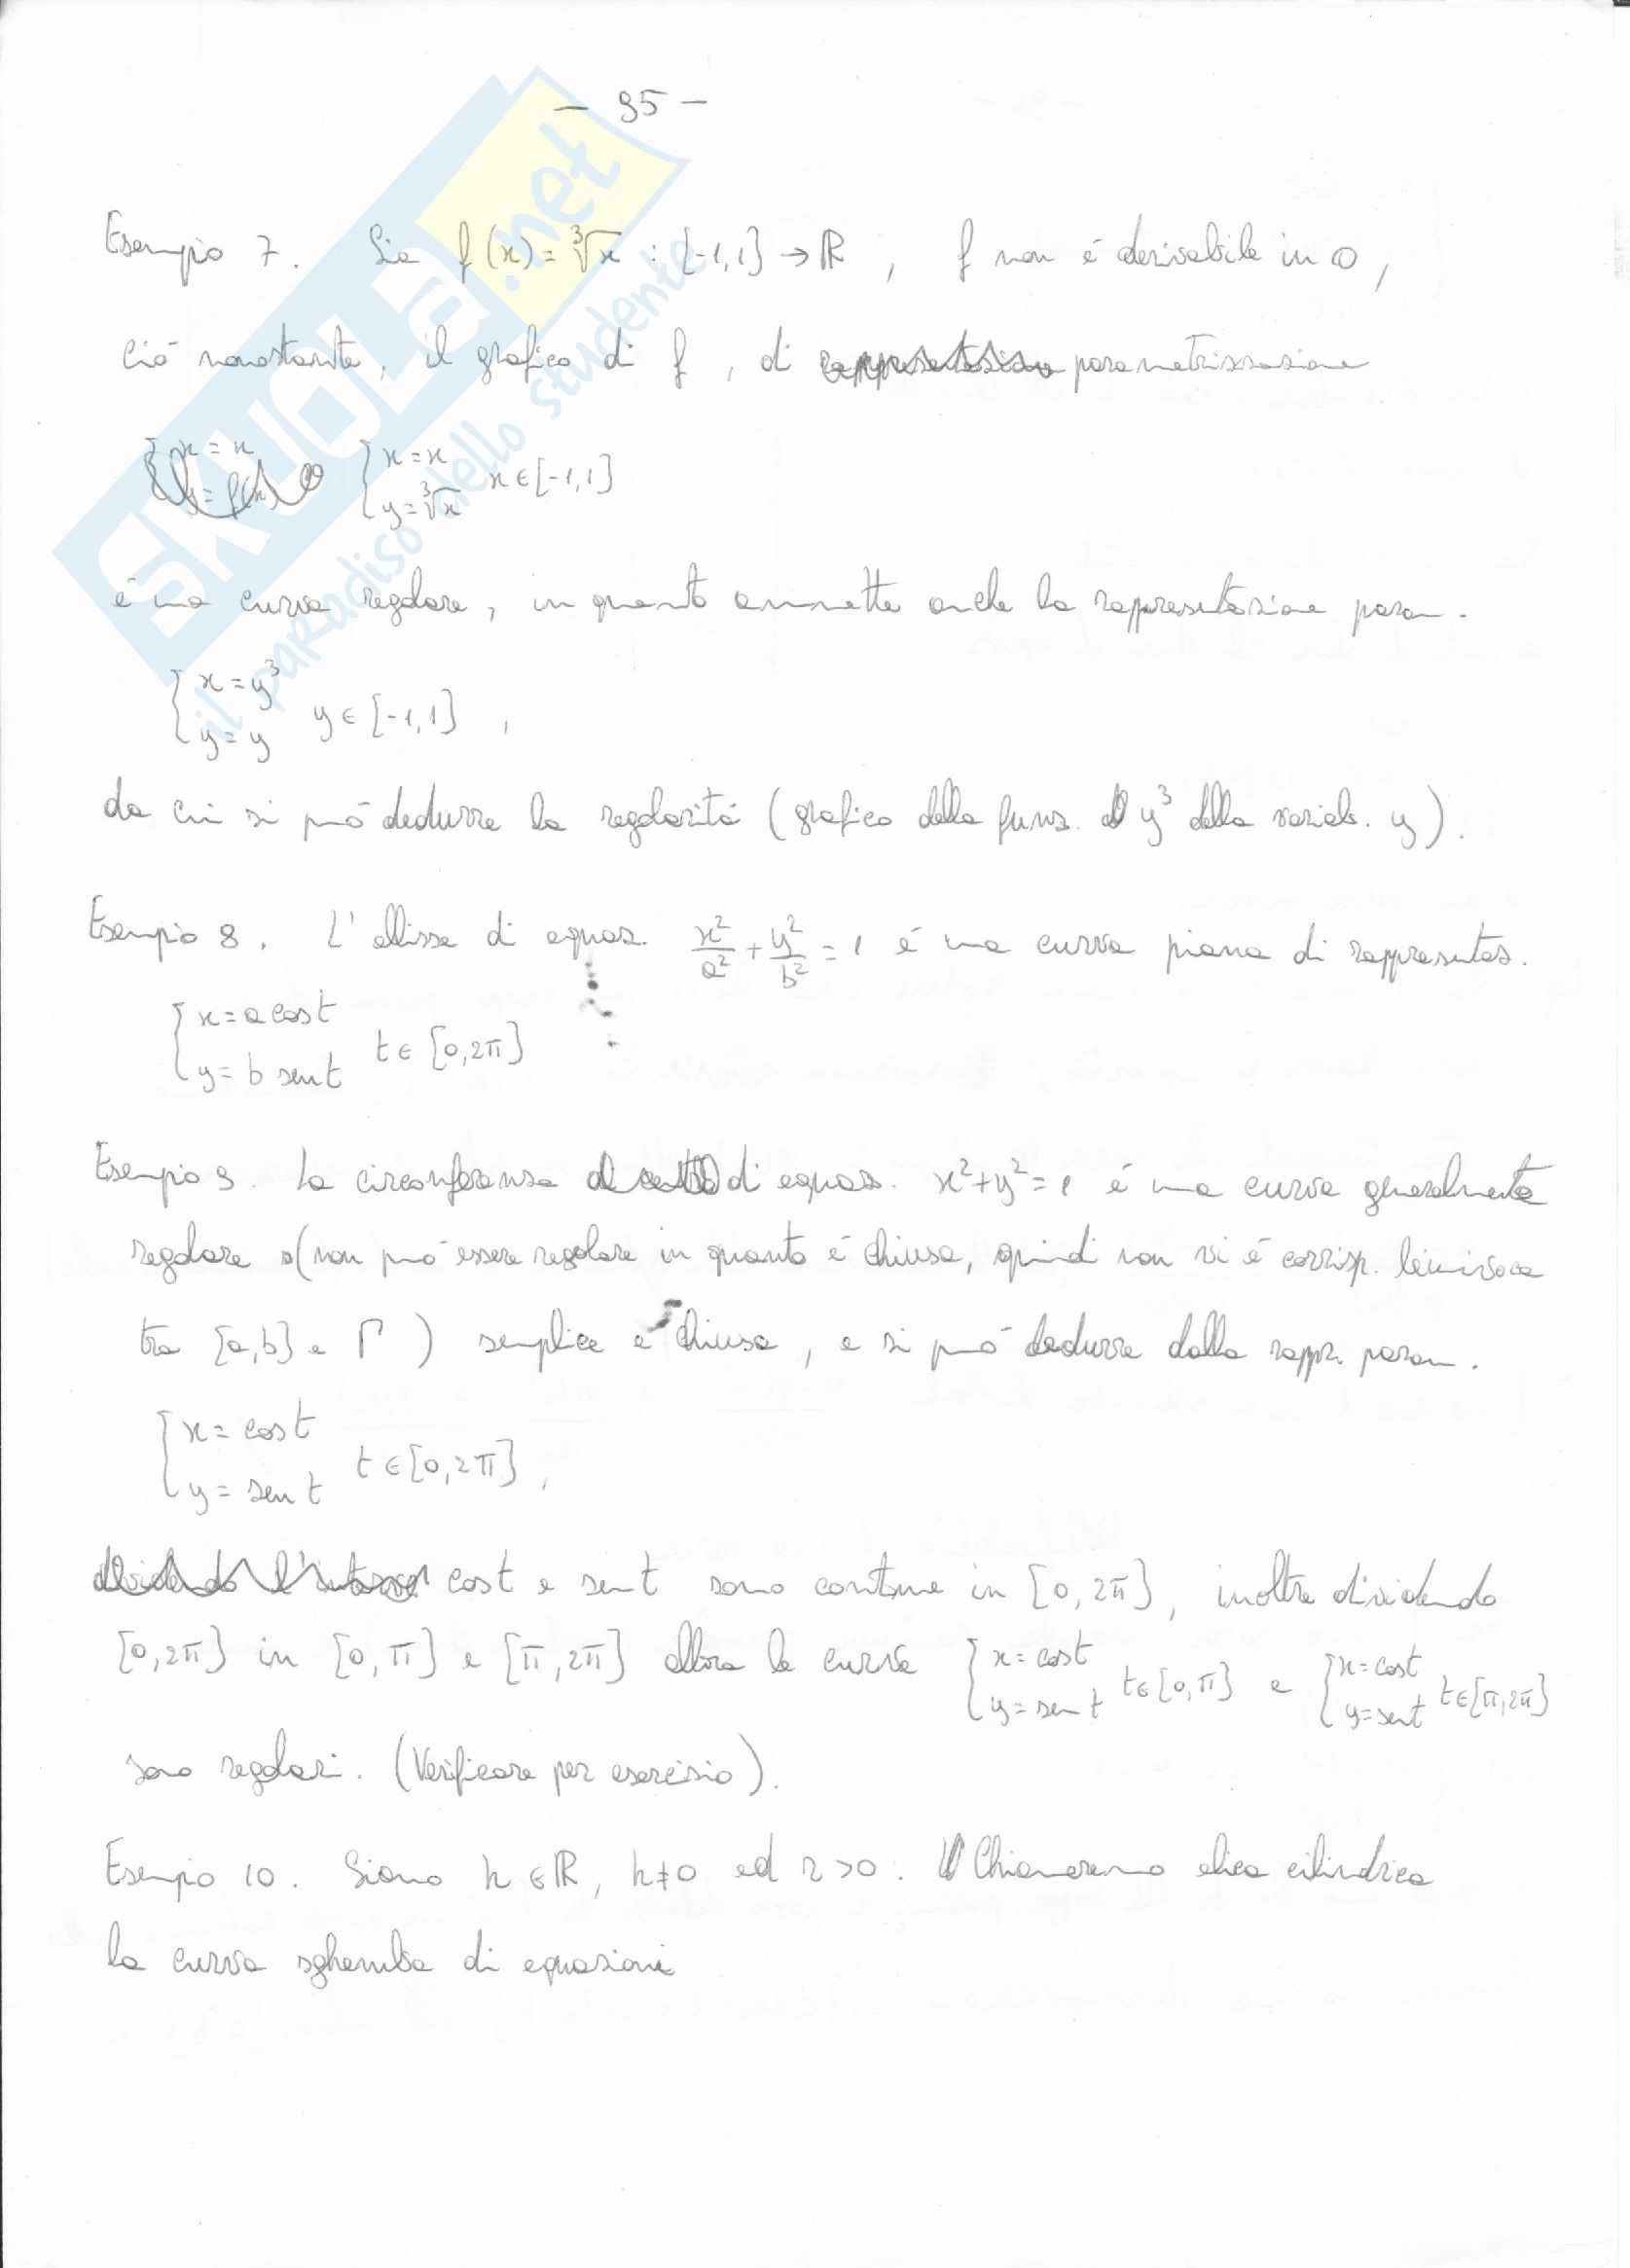 - 95 -
Esempio 7. Sia f(x) = ∛x : [-1,1] → ℝ, f non é derivabile in 0,
ció nonostante, il grafico di f, di parametrizzazione
{ x = x
y = f(x)
{ x = x
y = ∛x x ∈ [-1,1]
é una curva regolare, in quanto ammette anche la rappresentazione param.
{ x = y³
y = y y ∈ [-1,1],
da cui si puó dedurre la regolaritá (grafico della funz. y³ della variab. y).
Esempio 8. L'ellisse di equaz. x²/a² + y²/b² = 1 é una curva piana di rappresentaz.
{ x = a cos t
y = b sen t t ∈ [0,2π]
Esempio 9. La circonferenza di equaz. x²+y²=1 é una curva generalmente
regolare (non puó essere regolare in quanto é chiusa, quindi non vi é corrisp. biunivoca
tra [a,b] e Γ) semplice e chiusa, e si puó dedurre dalla rappr. param.
{ x = cos t
y = sen t t ∈ [0,2π],
cos t e sen t sono continue in [0,2π], inoltre dividendo
[0,2π] in [0,π] e [π,2π] allora le curve { x = cos t y = sen t t ∈ [0,π] e { x = cos t y = sen t t ∈ [π,2π]
sono regolari. (Verificare per esercizio).
Esempio 10. Siano h ∈ ℝ, h ≠ 0 ed r > 0. Chiameremo elica cilindrica
la curva sghemba di equazioni
SKUOLA.net
il paradiso dello studente